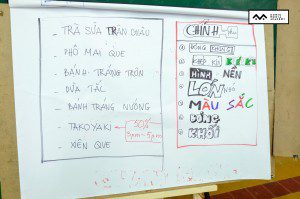 - TRÀ SỮA TRÂN CHÂU
- PHÔ MAI QUE
- BÁNH TRÁNG TRỘN
- DỪA TẮC
- BÁNH TRÁNG NƯỚNG
- TAKOYAKI
50%
3pm-5pm
- XIÊN QUE
CHÍNH
PHỤ
ĐÓNG KHUNG
HÌNH NỀN
LỚN NHỎ
MÀU SẮC
BÓNG
KHỐI